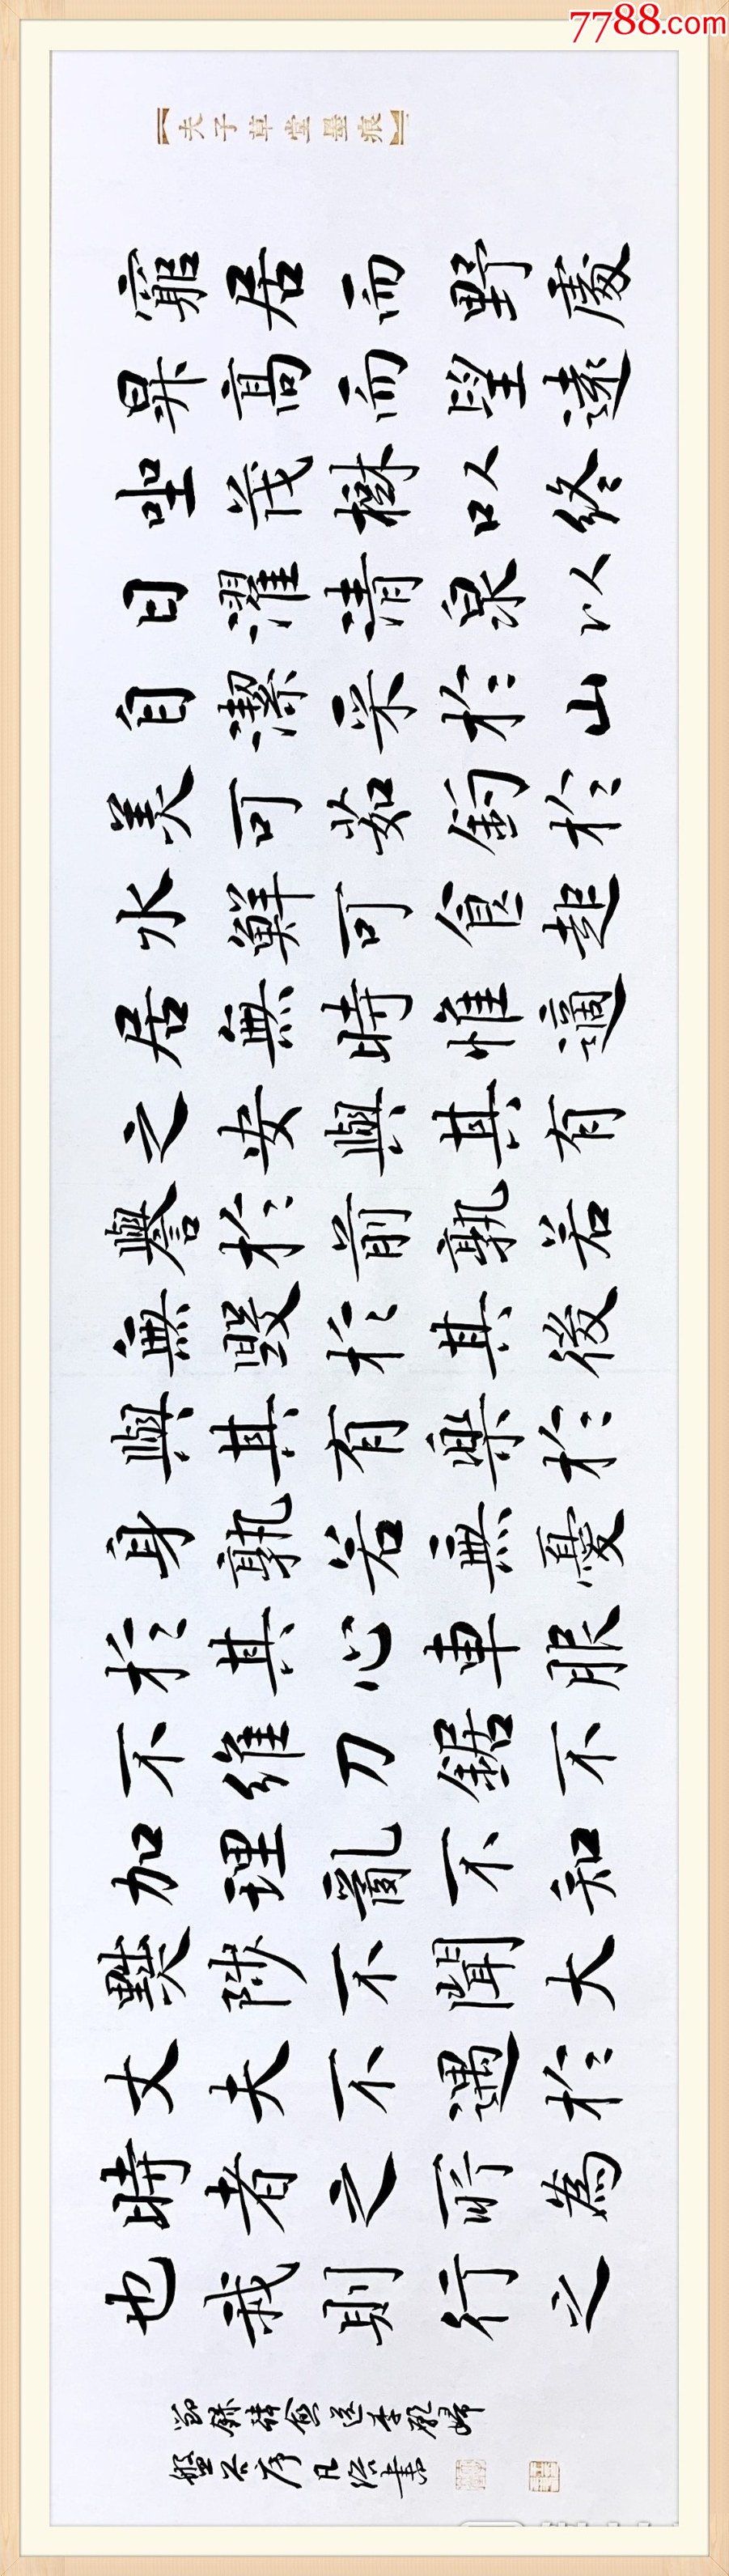 【夫子草堂墨痕】
窮居而野處
昇高而望遠
坐茂樹以終
日濯清泉以
自潔采於山
美可茹釣於
水鮮可食起
居無時惟適
之安與其有
譽於前孰若
無毀於其後
與其有樂於
身孰若無憂
於其心車服
不維刀鋸不
加理亂不知
黜陟不聞大
丈夫不遇於
時者之所為
也我則行之
節録韓愈送李愿歸
盤谷序 書
7788.com